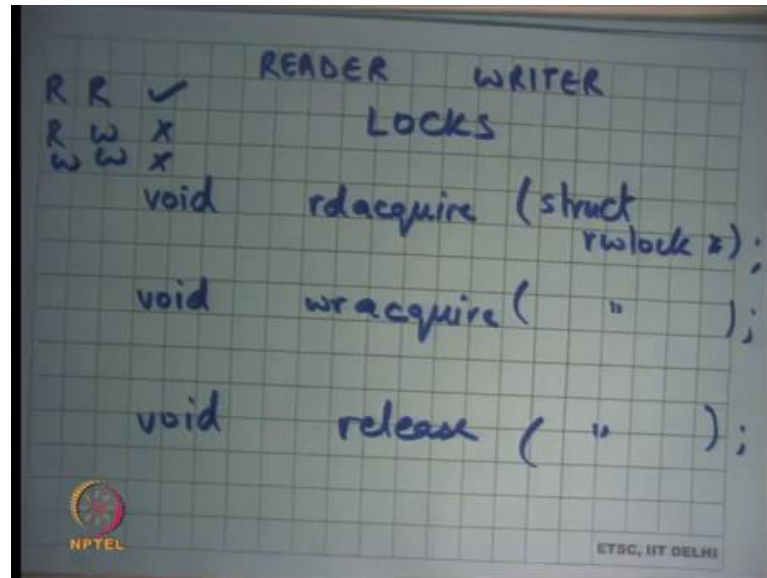 READER WRITER
LOCKS
R R ✓
R W X
W W X
void rdacquire (struct
rwlock *);
void wracquire ( " );
void release ( " );
NPTEL
ETSC, IIT DELHI